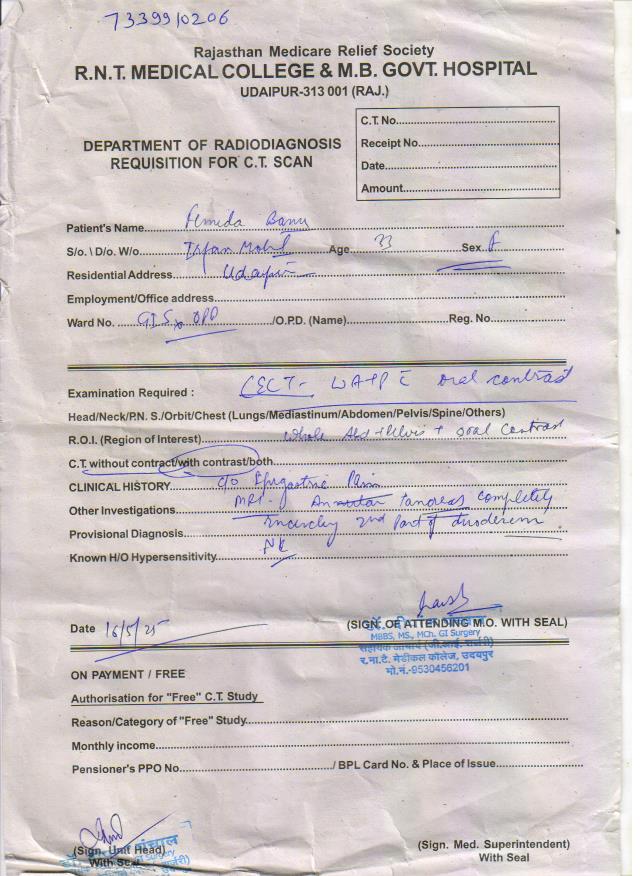 7339910206
Rajasthan Medicare Relief Society
R.N.T. MEDICAL COLLEGE & M.B. GOVT. HOSPITAL
UDAIPUR-313 001 (RAJ.)
DEPARTMENT OF RADIODIAGNOSIS
REQUISITION FOR C.T. SCAN
C.T. No.
Receipt No.
Date
Amount
Patient's Name Femida Banu
S/o. \ D/o. W/o Irfan Mohd Age 33 Sex F
Residential Address Udaipur
Employment/Office address
Ward No. GIS OPD /O.P.D. (Name) Reg. No.
Examination Required : CECT- WA+P c̄ oral contrast
Head/Neck/P.N. S./Orbit/Chest (Lungs/Mediastinum/Abdomen/Pelvis/Spine/Others)
R.O.I. (Region of Interest) Whole Abd + Pelvis + oral contrast
C.T. without contract/with contrast/both
CLINICAL HISTORY c/o Epigastric Pain
Other Investigations MRI- Annular Pancreas completely
encircling 2nd Part of duodenum
Provisional Diagnosis
Known H/O Hypersensitivity NK
Date 16/5/25
(SIGN. OF ATTENDING M.O. WITH SEAL)
MBBS, MS., MCh. GI Surgery
सहायक आचार्य (जी.आई. सर्जरी)
र.ना.टे. मेडीकल कॉलेज, उदयपुर
मो.नं.-9530456201
ON PAYMENT / FREE
Authorisation for "Free" C.T. Study
Reason/Category of "Free" Study
Monthly income
Pensioner's PPO No. / BPL Card No. & Place of Issue
(Sign. Unit Head)
With Seal
(Sign. Med. Superintendent)
With Seal